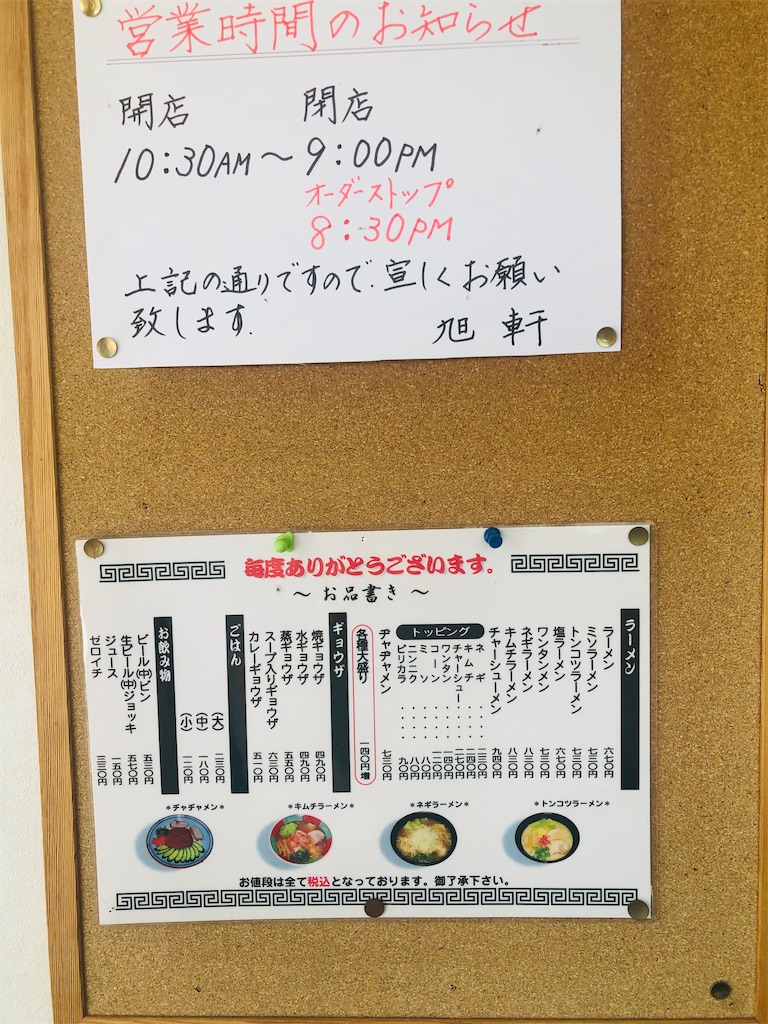 営業時間のお知らせ
開店 閉店
10:30AM～9:00PM
オーダーストップ
8:30PM
上記の通りですので、宜しくお願い
致します.
旭 軒
毎度ありがとうございます。
～ お品書き ～
ラーメン
ラーメン 六七〇
ミソラーメン 七三〇
トンコツラーメン 七三〇
塩ラーメン 六七〇
ワンタンメン 七三〇
ネギラーメン 八三〇
キムチラーメン 八三〇
チャーシューメン 九四〇
トッピング
ネギ
キムチ
チャーシュー
ワンタン
コーン
ミソ
ニンニク
ピリカラ
ヂャヂャメン 七三〇
各種大盛り 一四〇円増
ギョウザ
焼ギョウザ 四九〇
水ギョウザ 四九〇
蒸ギョウザ 五五〇
スープ入りギョウザ 六三〇
カレーギョウザ 五一〇
ごはん
(大) 二三〇
(中) 一八〇
(小) 一二〇
お飲み物
ビール(中)ビン 五三〇
生ビール(中)ジョッキ 五七〇
ジュース 一五〇
ゼロイチ 三三〇
＊ヂャヂャメン＊
＊キムチラーメン＊
＊ネギラーメン＊
＊トンコツラーメン＊
お値段は全て税込となっております。御了承下さい。